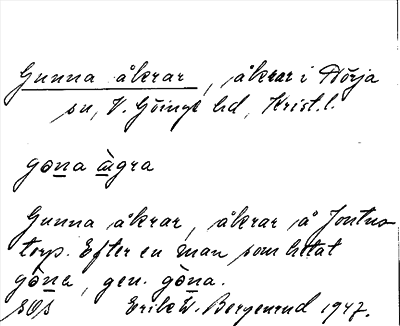 Gunna åkrar, åkrar i Nörja
sn, V. Göinge hd, Krist. l.
gona àgra
Gunna åkrar, åkrar å Jontus-
torp. Efter en man som hetat
gòna, gen. gòna.
SOS Erik W. Bergenrud 1947.